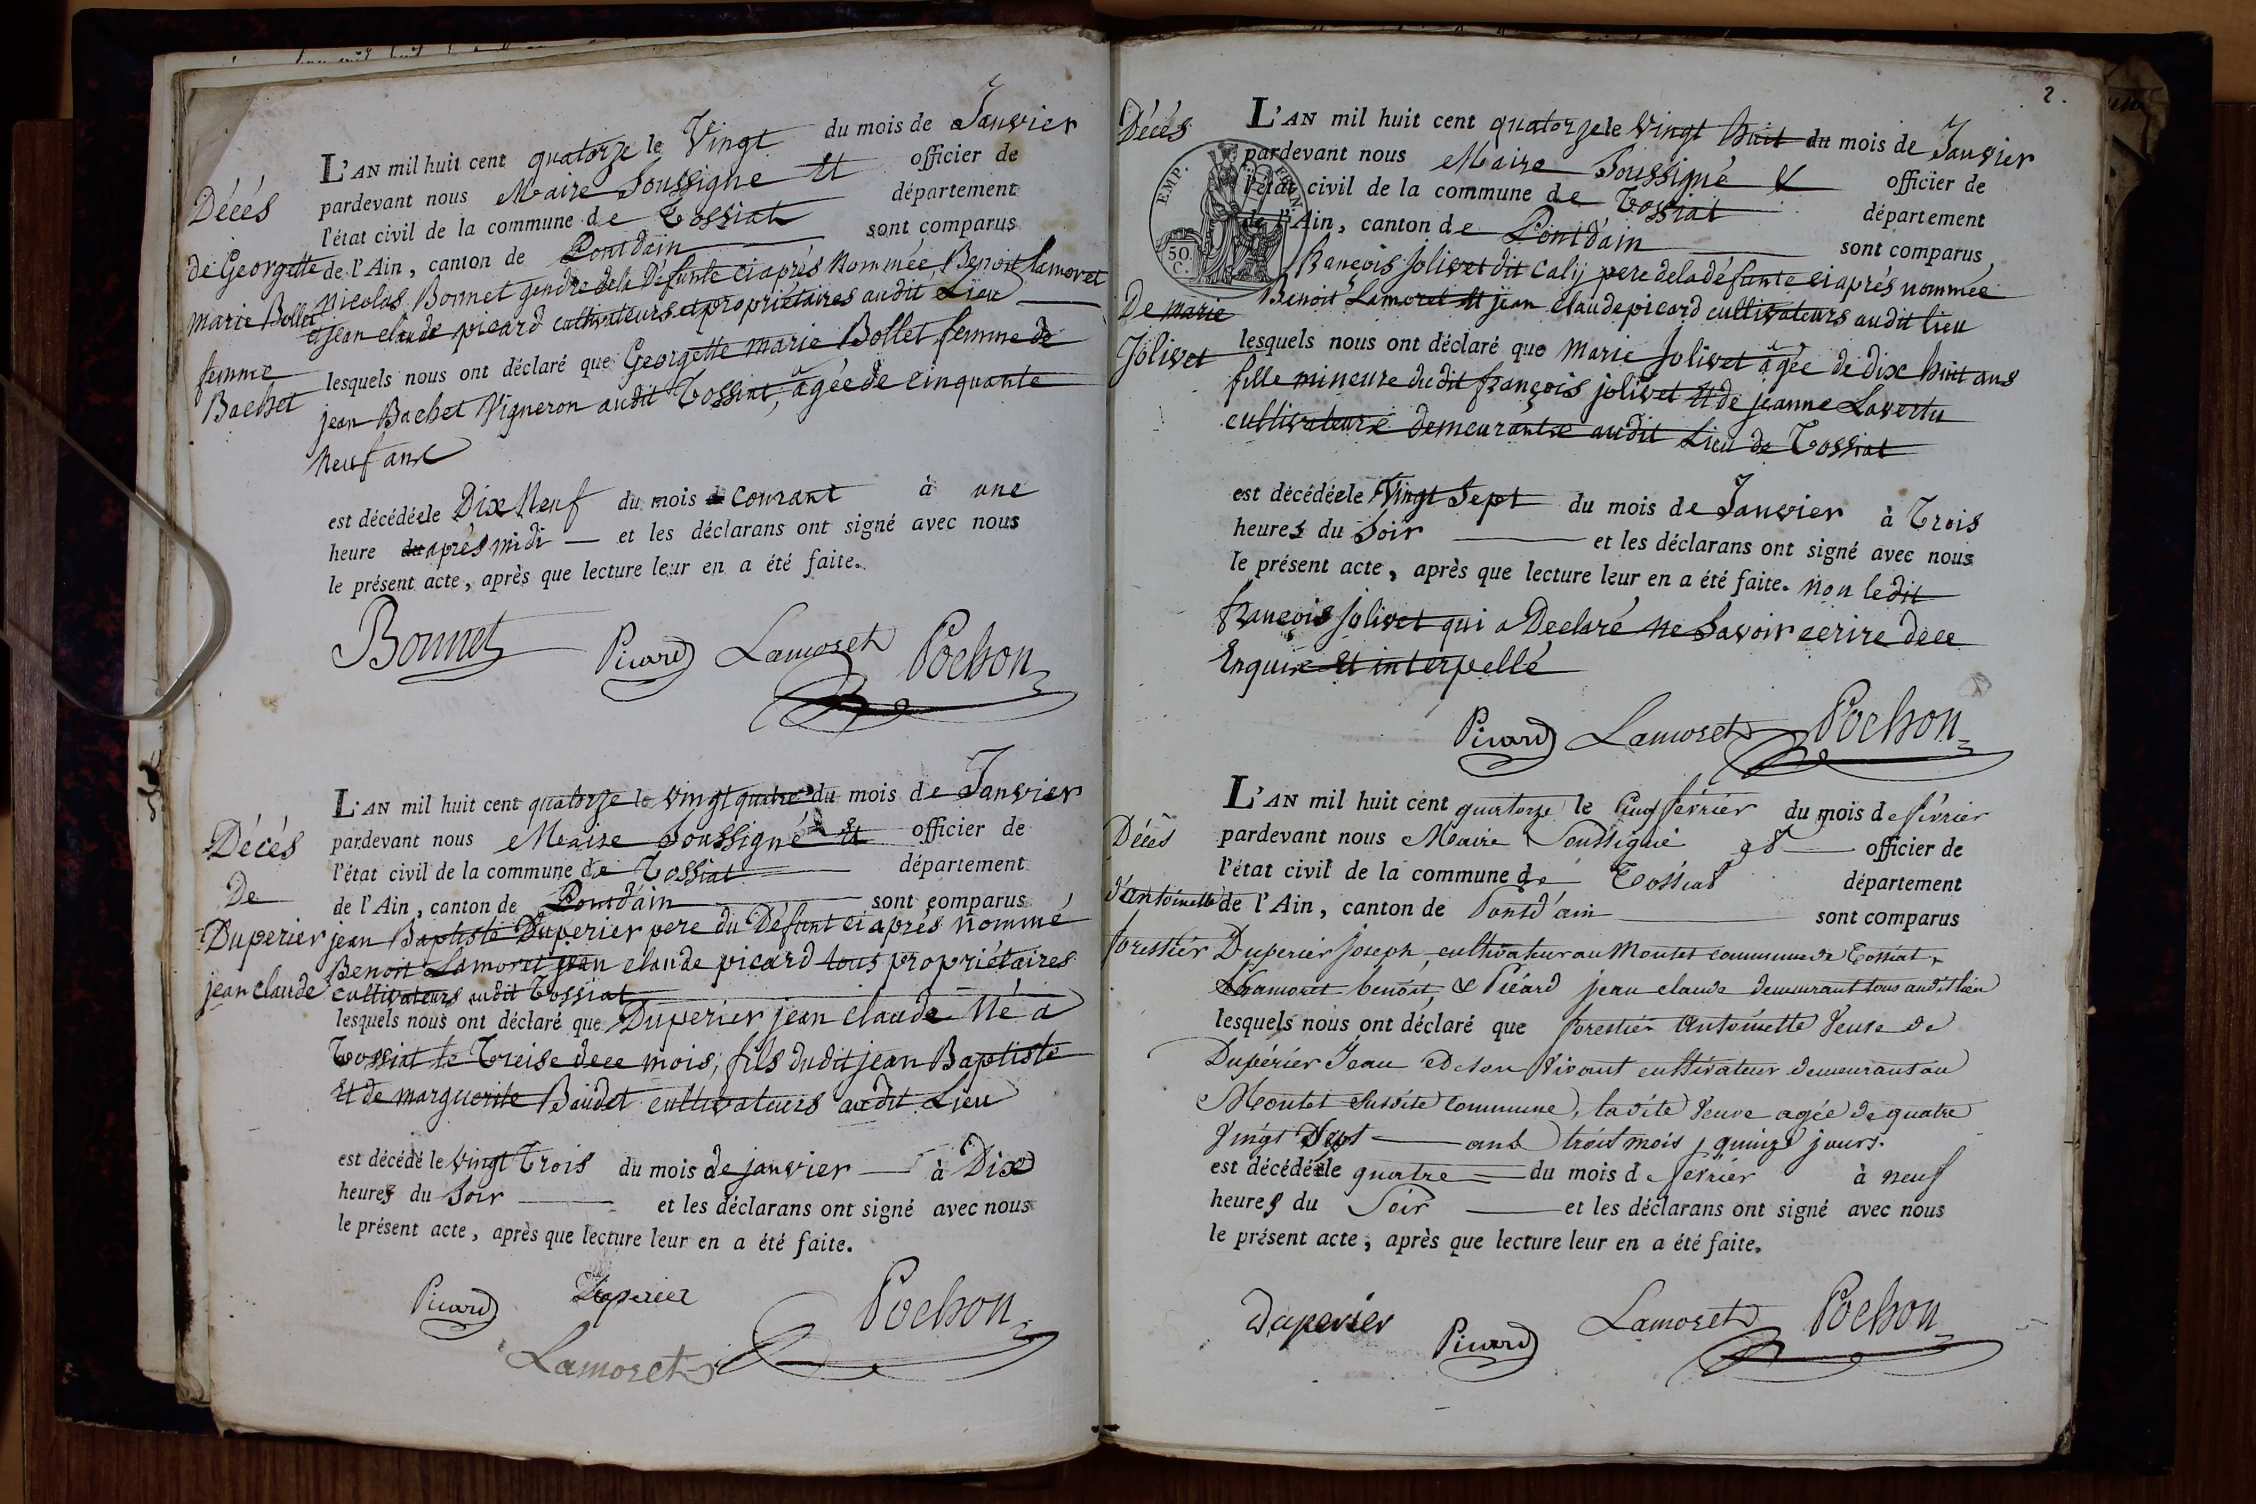 Décés
de Georgette
marie Bollet
femme
Bachet
L'AN mil huit cent quatorze le Vingt du mois de Janvier
pardevant nous Maire Soussigné Et officier de
l'état civil de la commune de Tossiat département
de l'Ain, canton de Pontdain sont comparus
Nicolas Bonnet gendre de la Defunte ci après Nommée, Benoit Lamoret
et jean claude picard cultivateurs et propriétaires audit Lieu
lesquels nous ont déclaré que Georgette marie Bollet femme de
jean Bachet Vigneron audit Tossiat, agée de cinquante
Neuf ans
est décédée le Dix Neuf du mois courant à une
heure après midi et les déclarans ont signé avec nous
le présent acte, après que lecture leur en a été faite.
Bonnet Picard Lamoret Pochon
Décés
De
Duperier
jean claude
L'AN mil huit cent quatorze le vingt quatre du mois de Janvier
pardevant nous Maire Soussigné Et officier de
l'état civil de la commune de Tossiat département
de l'Ain, canton de Pontdain sont comparus
jean Baptiste Duperier pere du Défunt ci après nommé
Benoit Lamoret jean claude picard tous propriétaires
cultivateurs audit Tossiat
lesquels nous ont déclaré que Duperier jean claude Né a
Tossiat le Treise dece mois, fils dudit jean Baptiste
Et de marguerite Baudet cultivateurs audit Lieu
est décédé le vingt Trois du mois de janvier à Dix
heures du Soir et les déclarans ont signé avec nous
le présent acte, après que lecture leur en a été faite.
Picard Duperier Pochon
Lamoret
2.
Décés
De marie
Jolivet
EMP. FRAN.
50 C.
L'AN mil huit cent quatorze le Vingt huit du mois de Janvier
pardevant nous Maire Soussigné & officier de
l'état civil de la commune de Tossiat département
de l'Ain, canton de Pontdain sont comparus
François Jolivet dit Calij pere dela défunte ci après nommée
Benoit Lamoret Et jean claude picard cultivateurs audit lieu
lesquels nous ont déclaré que Marie Jolivet agée de dix huit ans
fille mineure dudit françois jolivet Et de jeanne Lavertu
cultivateurs demeurants audit Lieu de Tossiat
est décédée le Vingt Sept du mois de Janvier à Trois
heures du Soir et les déclarans ont signé avec nous
le présent acte, après que lecture leur en a été faite. Non ledit
françois Jolivet qui a Declaré ne Savoir ecrire dece
Enquis Et interpellé
Picard Lamoret Pochon
Décès
d'antoinette
forestiér
L'AN mil huit cent quatorze le Cinq février du mois de février
pardevant nous Maire Soussigné et officier de
l'état civil de la commune de Tossiat département
de l'Ain, canton de Pontd'ain sont comparus
Duperier Joseph cultivateur au Montet commune de Tossiat,
Lamoret benoit, & Picard jean claude demeurant tous audit lieu
lesquels nous ont déclaré que forestiér Antoinette Veuve de
Dupérier Jean de son Vivant cultivateur demeurant au
Montet susdite commune, ladite Veuve agée de quatre
Vingt Sept ans trois mois quinze jours.
est décédée le quatre du mois de février à neuf
heures du Soir et les déclarans ont signé avec nous
le présent acte, après que lecture leur en a été faite.
Duperier Picard Lamoret Pochon